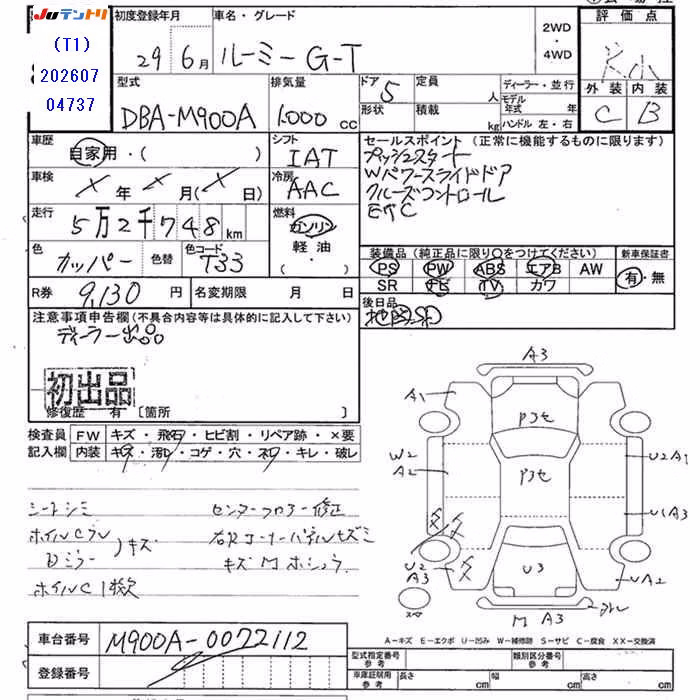 JUテントリ
(T1)
202607
04737
初度登録年月
29年 6月
車名・グレード
ルーミー G-T
2WD
・
4WD
評価点
外装 内装
C B
型式
DBA-M900A
排気量
1.000 cc
ドア 5
形状
定員 人
積載 kg
ディーラー・並行
モデル年式 年
ハンドル 左・右
車歴
自家用・( )
シフト
IAT
車検
X 年 X 月(X 日)
冷房
AAC
セールスポイント (正常に機能するものに限ります)
プッシュスタート
Wパワースライドドア
クルーズコントロール
ETC
走行
5万2千748km
燃料
ガソリン
軽油・
( )
色
カッパー
色替
色コード
T33
装備品(純正品に限り○をつけてください)
PS PW ABS エアB AW
SR ナビ TV カワ
新車保証書
有・無
R券
9,130円
名変期限 月 日
後日品
注意事項申告欄(不具合内容等は具体的に記入して下さい)
ディーラー出品
初出品
修復歴 有 [箇所 ]
検査員
記入欄
FW キズ・飛石・ヒビ割・リペア跡・×要
内装 キズ・汚れ・コゲ・穴・ネジ・キレ・破レ
シートシミ
ホイルCフレ
Dミラー )キズ
ホイルC1欠
センターフロアー修正
右Rコーナーパネルキズミ
キズMホシュウ
A3
A1
P3セ
P3セ
W2
A2
U2A1
U1A3
U2
A3
U3
UA2
M A3
A-キズ E-エクボ U-凹み W-補修跡 S-サビ C-腐食 XX-交換済
車台番号
M900A-0072112
登録番号
型式指定番号
参考
類別区分番号
参考
車庫証明用
参考
長さ cm
幅 cm
高さ cm